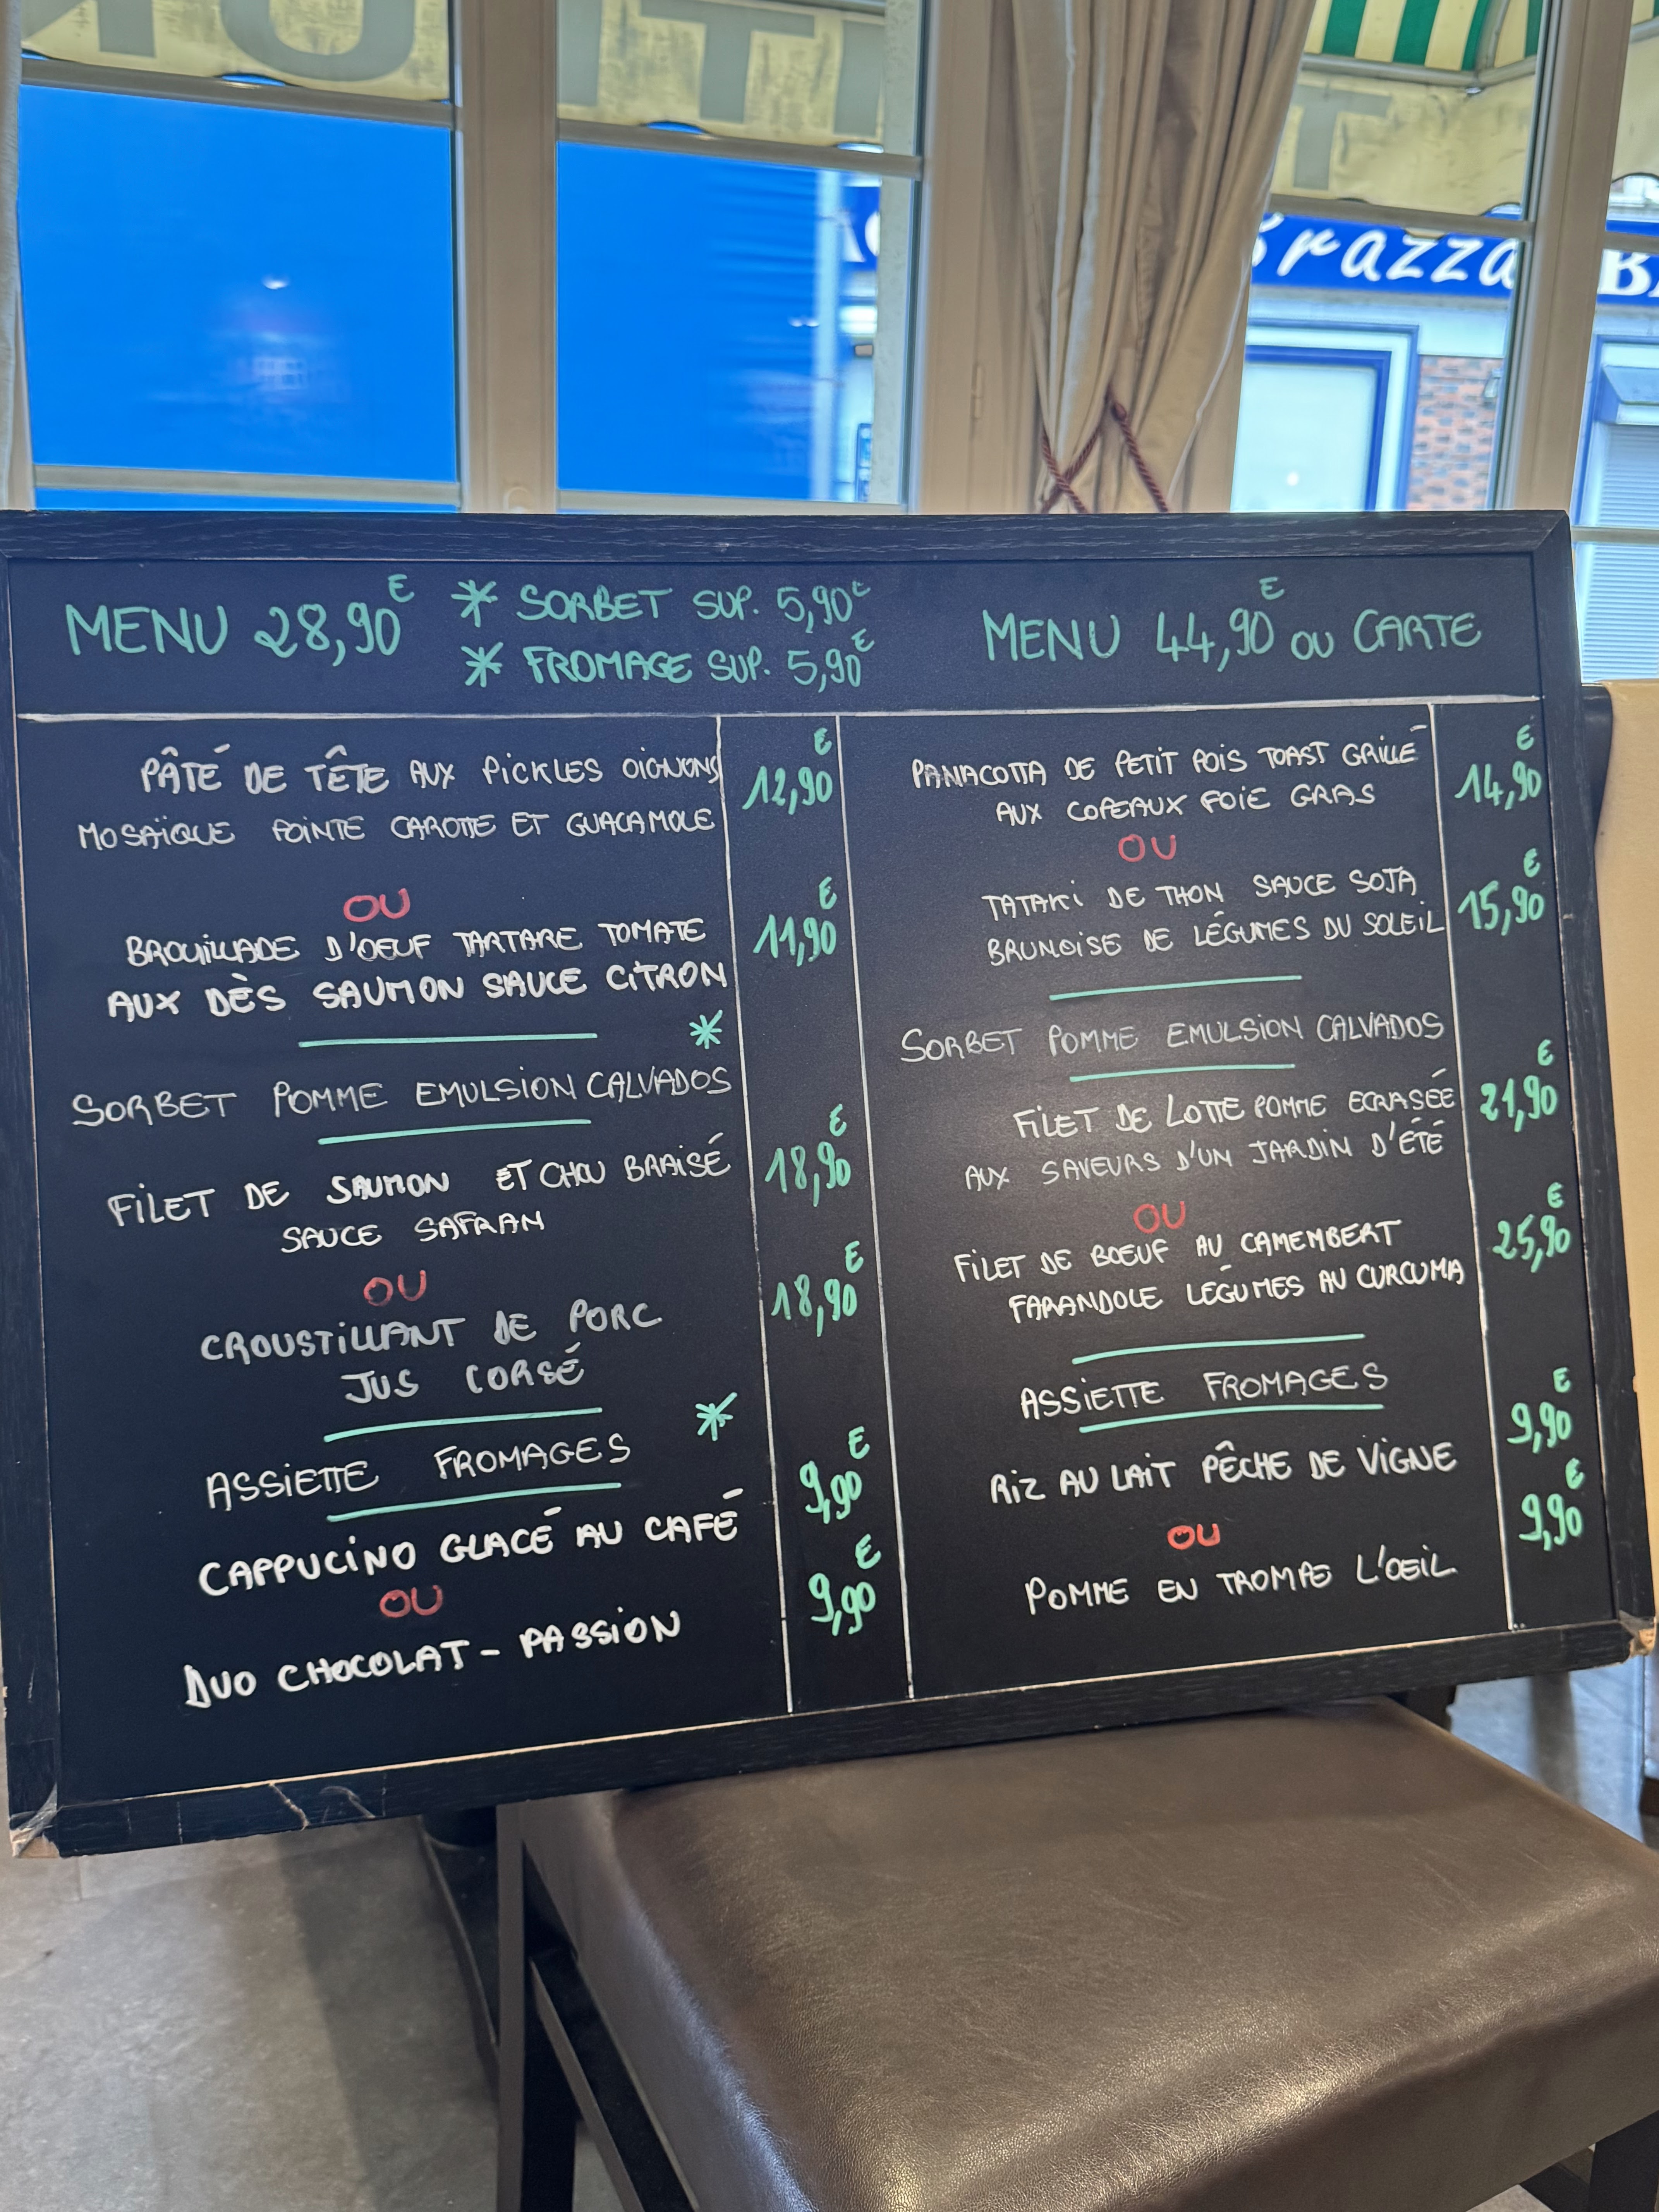 Brazza
MENU 28,90€
* SORBET SUP. 5,90€
* FROMAGE SUP. 5,90€
MENU 44,90€ OU CARTE
PÂTÉ DE TÊTE AUX PICKLES OIGNONS 12,90€
MOSAÏQUE POINTE CAROTTE ET GUACAMOLE
OU
BROUILLADE D'OEUF TARTARE TOMATE 11,90€
AUX DÈS SAUMON SAUCE CITRON
*
SORBET POMME EMULSION CALVADOS
FILET DE SAUMON ET CHOU BRAISÉ 18,90€
SAUCE SAFRAN
OU
CROUSTILLANT DE PORC 18,90€
JUS CORSÉ
*
ASSIETTE FROMAGES
CAPPUCINO GLACÉ AU CAFÉ 9,90€
OU
DUO CHOCOLAT - PASSION 9,90€
PANACOTTA DE PETIT POIS TOAST GRILLÉ 14,90€
AUX COPEAUX FOIE GRAS
OU
TATAKI DE THON SAUCE SOJA 15,90€
BRUNOISE DE LÉGUMES DU SOLEIL
SORBET POMME EMULSION CALVADOS
FILET DE LOTTE POMME ECRASÉE 21,90€
AUX SAVEURS D'UN JARDIN D'ÉTÉ
OU
FILET DE BOEUF AU CAMEMBERT 25,90€
FARANDOLE LÉGUMES AU CURCUMA
ASSIETTE FROMAGES
RIZ AU LAIT PÊCHE DE VIGNE 9,90€
OU
POMME EN TROMPE L'OEIL 9,90€